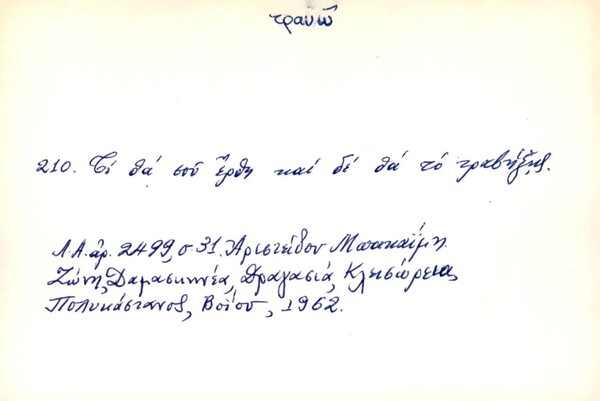 τραυῶ
210. Τί θά σοῦ ἔρθη καί δέ θά τό τραβήξης.
Λ.Α. ἀρ. 2499, σ. 31. Ἀριστείδου Μπακαΐμη
Ζώνη, Δαμασκηνέα, Δραγασιά, Κλεισώρεια
Πολυκάστανος, Βοΐου, 1962.